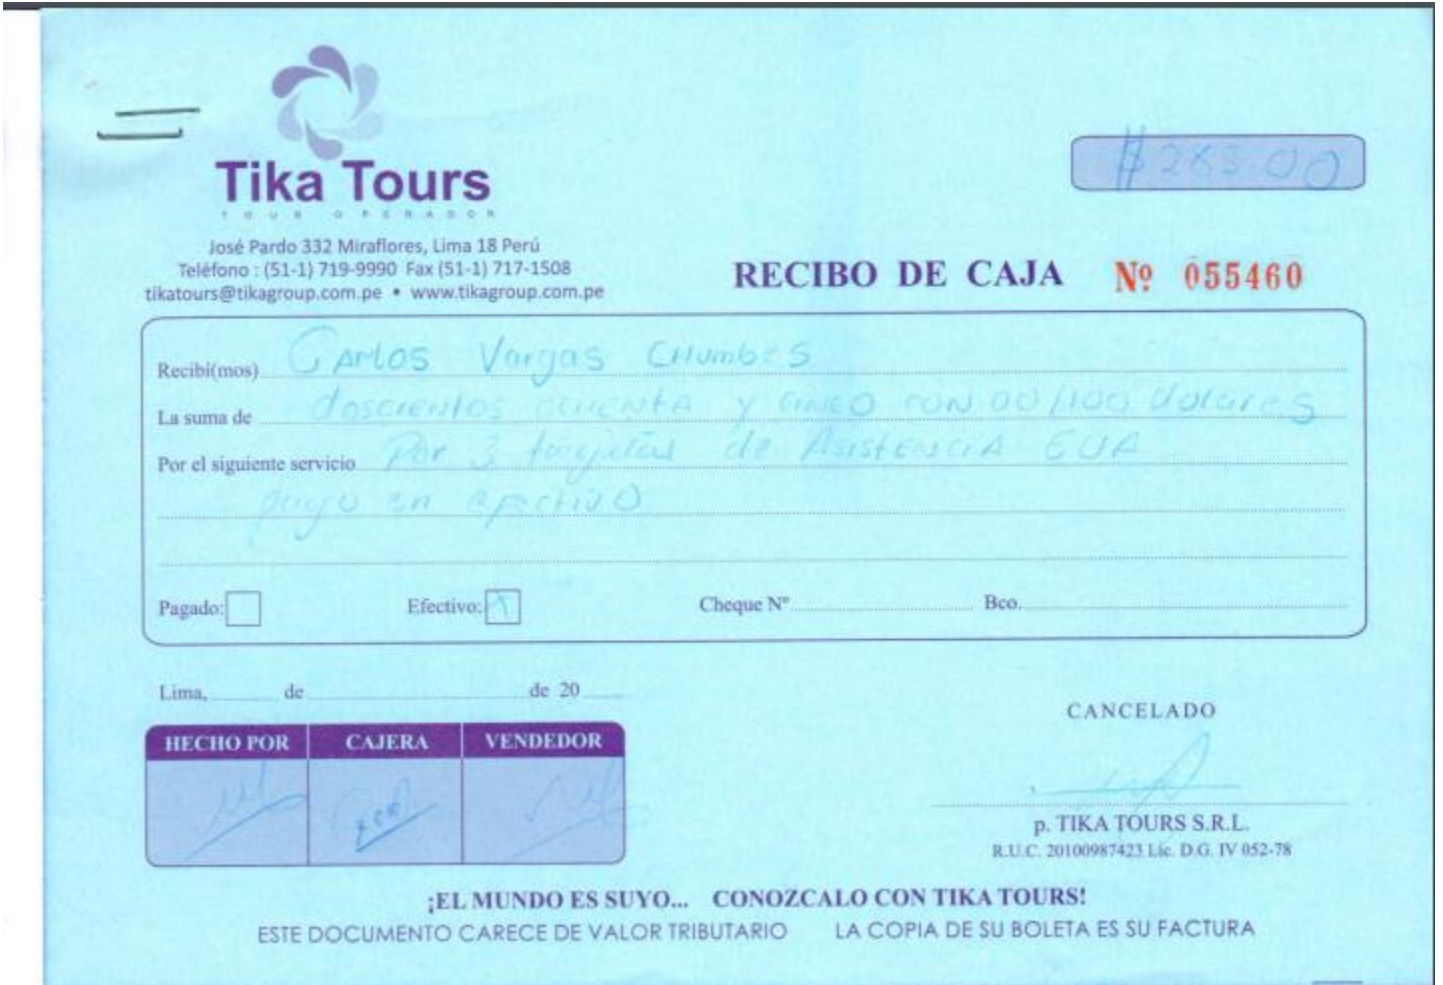 Tika Tours
TOUR OPERADOR
José Pardo 332 Miraflores, Lima 18 Perú
Teléfono : (51-1) 719-9990 Fax (51-1) 717-1508
tikatours@tikagroup.com.pe • www.tikagroup.com.pe
RECIBO DE CAJA Nº 055460
Recibí(mos) Carlos Vargas Chumbes
La suma de doscientos y cinco con 00/100 dolares
Por el siguiente servicio Por 3 tarjetas de Asistencia EUA
pago en efectivo
Pagado: Efectivo: Cheque Nº Bco.
Lima, de de 20
CANCELADO
HECHO POR CAJERA VENDEDOR
p. TIKA TOURS S.R.L.
R.U.C. 20100987423 Lic. D.G. IV 052-78
¡EL MUNDO ES SUYO... CONOZCALO CON TIKA TOURS!
ESTE DOCUMENTO CARECE DE VALOR TRIBUTARIO LA COPIA DE SU BOLETA ES SU FACTURA